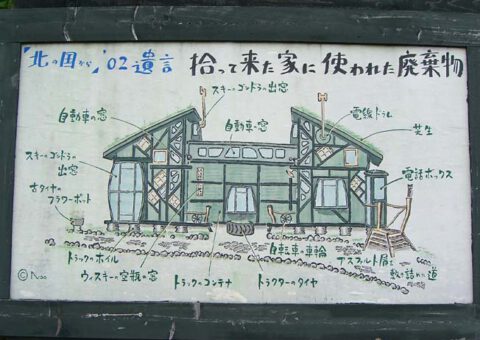 "北の国から" '02遺言 拾って来た家に使われた廃棄物
スキーのゴンドラの出窓
自動車の窓
自動車の窓
電線ドラム
芝生
スキーのゴンドラの
出窓
電話ボックス
古タイヤの
フラワーポット
トラックのホイル
ウィスキーの空瓶の窓
トラックのコンテナ
トラクターのタイヤ
自転車の車輪
アスファルト屑を
敷き詰めた道